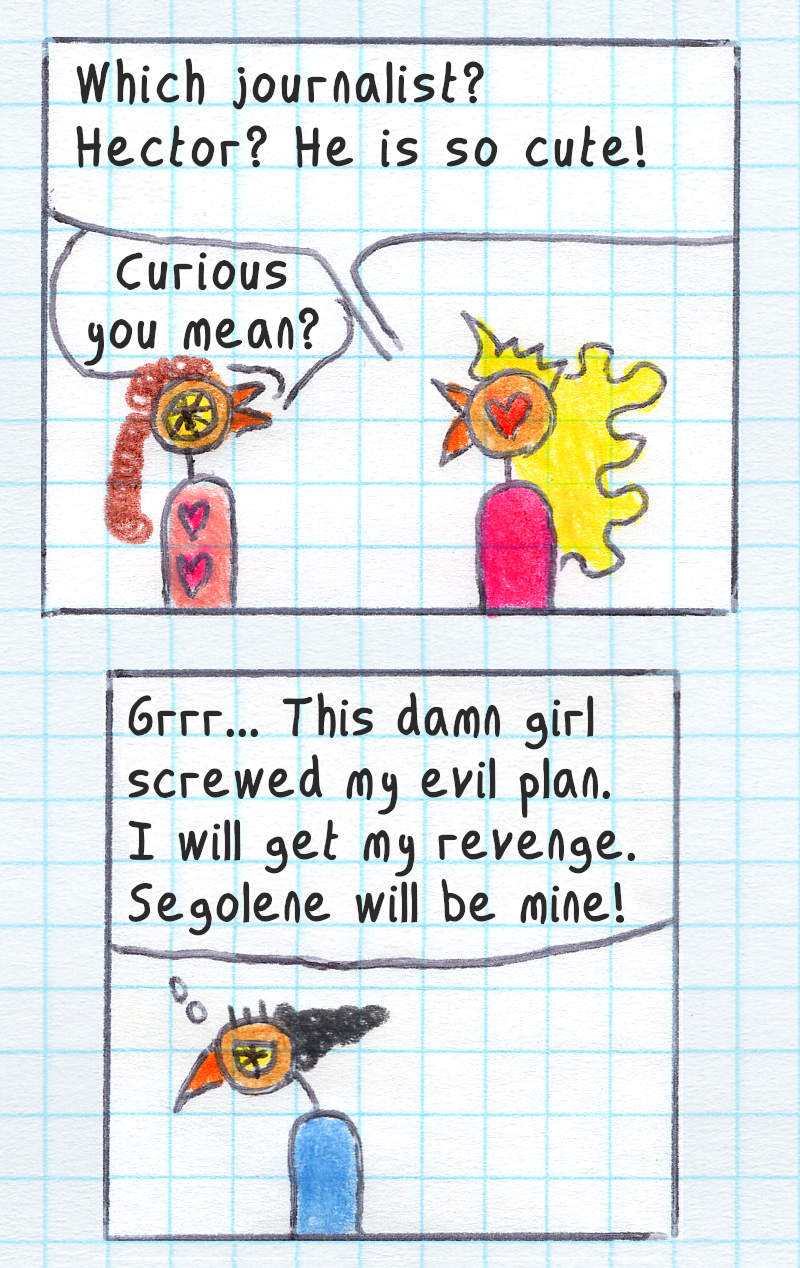 Which journalist?
Hector? He is so cute!
Curious
you mean?
Grrr... This damn girl
screwed my evil plan.
I will get my revenge.
Segolene will be mine!